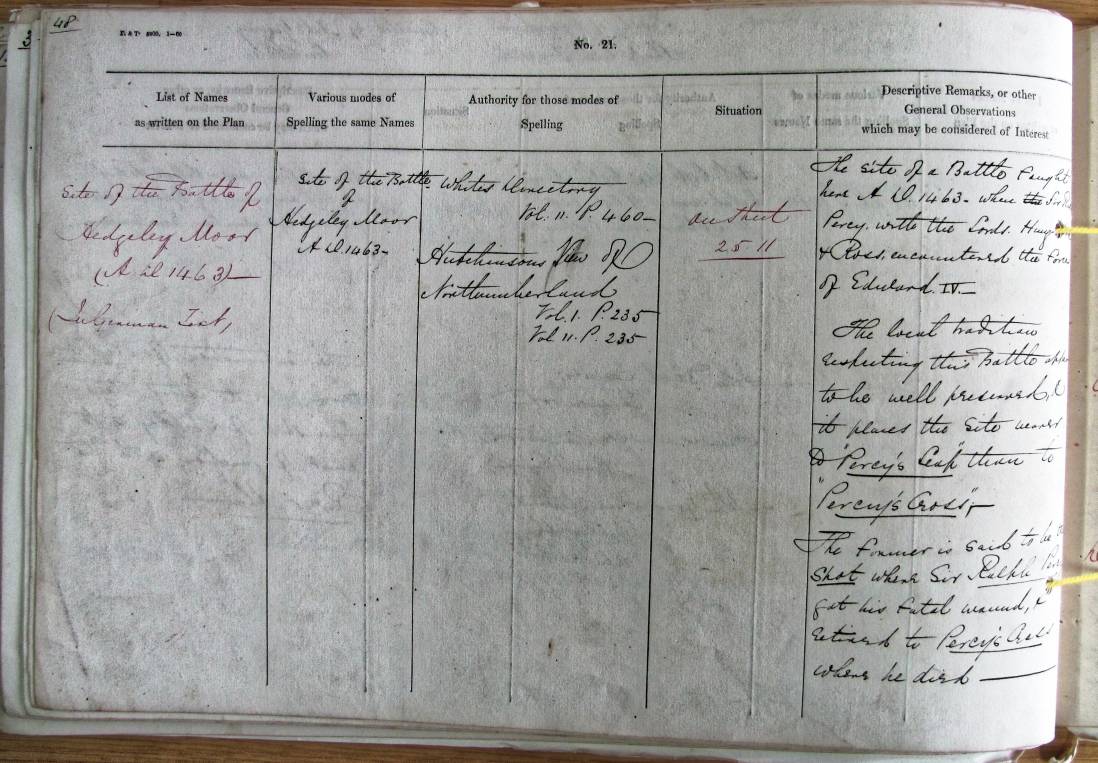 48
No. 21.
List of Names
as written on the Plan
Various modes of
Spelling the same Names
Authority for those modes of
Spelling
Situation
Descriptive Remarks, or other
General Observations
which may be considered of Interest
Site of the Battle of
Hedgeley Moor
(A D 1463)
(In German Text,
Site of the Battle
of
Hedgeley Moor
A D. 1463-
Whites Directory
Vol. 11. P. 460-
Hutchinsons View of
Northumberland
Vol. 1. P. 235
Vol 11. P. 235
on Sheet
25 11
The site of a Battle Fought
here A D. 1463- when the Sir
Percy, with the Lords.
& Ross, encountered the
of Edward IV.-
The local tradition
respecting this Battle
to be well preserved, &
it places the site nearer
to "Percy's Leap" than to
"Percy's Cross",-
The former is said to be
Spot where Sir Ralph
got his fatal wound, &
retired to Percy's Cross
where he died